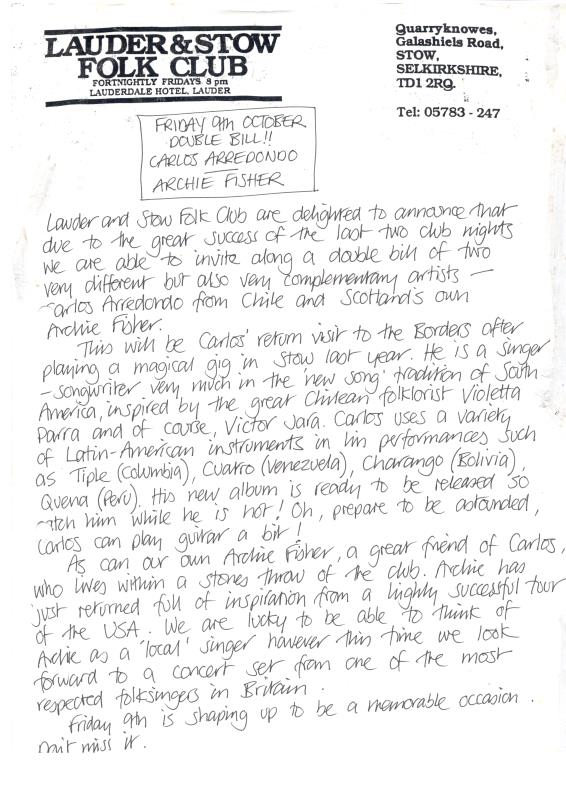 LAUDER & STOW
FOLK CLUB
FORTNIGHTLY FRIDAYS 8 pm
LAUDERDALE HOTEL, LAUDER
Quarryknowes,
Galashiels Road,
STOW,
SELKIRKSHIRE,
TD1 2RQ.
Tel: 05783 - 247
FRIDAY 9th OCTOBER
DOUBLE BILL!!
CARLOS ARREDONDO
ARCHIE FISHER
Lauder and Stow Folk Club are delighted to announce that
due to the great success of the last two club nights
we are able to invite along a double bill of two
very different but also very complementary artists –
arlos Arredondo from Chile and Scotland's own
Archie Fisher.
This will be Carlos' return visit to the Borders after
playing a magical gig in Stow last year. He is a singer
– songwriter very much in the 'new song' tradition of South
America, inspired by the great Chilean folklorist Violetta
Parra and of course, Victor Jara. Carlos uses a variety
of Latin-American instruments in his performances such
as Tiple (Columbia), Cuatro (Venezuela), Charango (Bolivia),
Quena (Perú). His new album is ready to be released so
atch him while he is hot! Oh, prepare to be astounded,
Carlos can play guitar a bit!
As can our own Archie Fisher, a great friend of Carlos,
who lives within a stones throw of the club. Archie has
just returned full of inspiration from a highly successful tour
of the USA. We are lucky to be able to think of
Archie as a 'local' singer however this time we look
forward to a concert set from one of the most
respected folksingers in Britain.
Friday 9th is shaping up to be a memorable occasion.
Don't miss it.